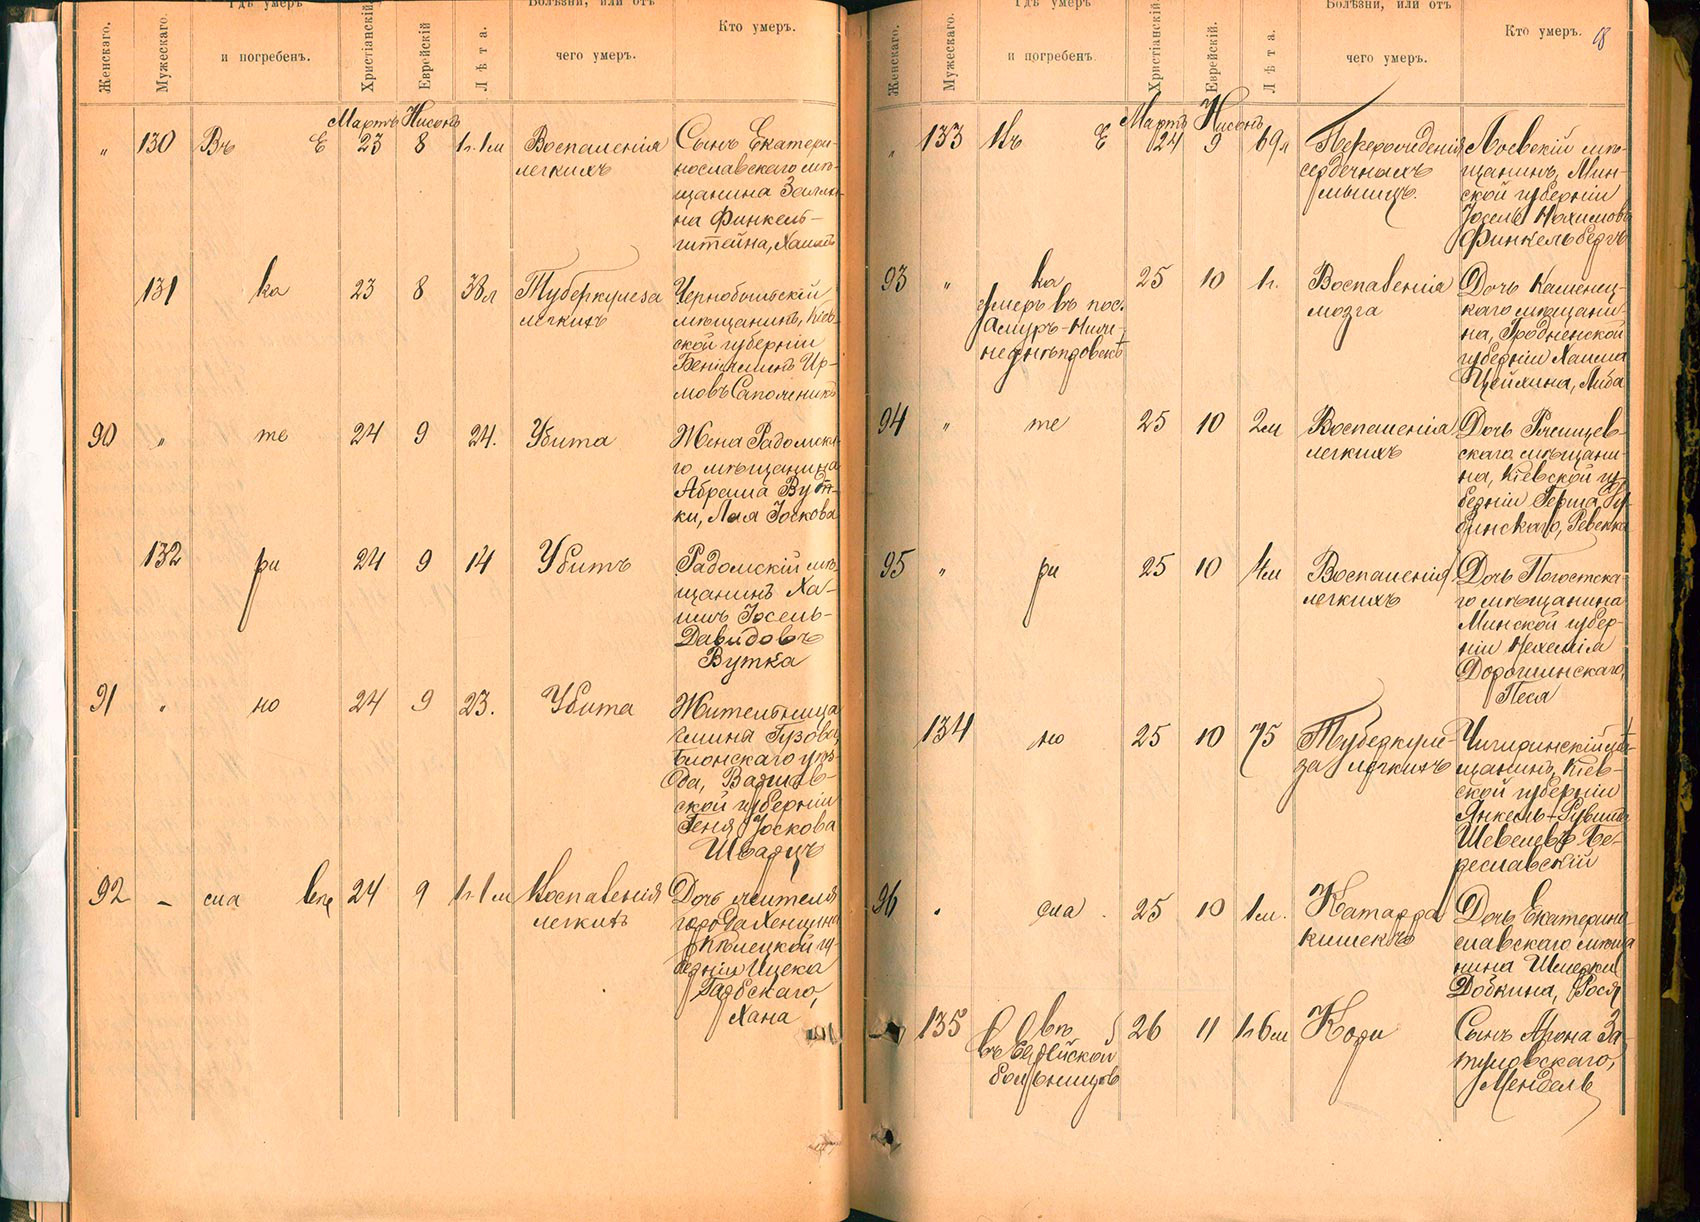 Женскаго.
Мужескаго.
Гдѣ умеръ
и погребенъ.
Христіанскій
Еврейскій
Лѣта.
Болѣзни, или отъ
чего умеръ.
Кто умеръ.
Мартъ Нисонъ
„ 130 Въ Е 23 8 1г. 1м Воспаленія
легкихъ
Сынъ Екатери-
нославскаго мѣ-
щанина Залма-
на Финкель-
штейна, Хаимъ
131 ка 23 8 38л Туберкулеза
легкихъ
Чернобыльскій
мѣщанинъ, Кіев-
ской губерніи
Беніаминъ Ир-
мовъ
90 „ те 24 9 24. Убита
Жена Радомска-
го мѣщанина
Абрама Вут-
ки, Лая Іоскова
132 ри 24 9 14 Убитъ
Радомскій мѣ-
щанинъ Ха-
имъ Іосель-
Давидовъ
Вутка
91 „ но 24 9 23. Убита
Жительница
гмина Гузова,
Блонскаго уѣз-
да, Варшав-
ской губерніи
Геня Іоскова
Шварцъ
92 - сла вѣ 24 9 1г. 1м Воспаленія
легкихъ
Дочь жителя
города Хенцина
Кѣлецкой гу-
берніи Ицека
Гарбскаго,
Хана
Женскаго.
Мужескаго.
Гдѣ умеръ
и погребенъ.
Христіанскій
Еврейскій.
Лѣта.
Болѣзни, или отъ
чего умеръ.
Кто умеръ.
Мартъ Нисонъ
„ 133 Въ Е 24 9 69л Перерожденія
сердечныхъ
мышцъ.
Лоевскій мѣ-
щанинъ, Мин-
ской губерніи
Іосель Нохимовъ
Финкельбергъ
93 „ ка 25 10 1г. Воспаленія
мозга
умеръ въ пос.
Амуръ-Ниж-
неднѣпровскѣ
Дочь Каменец-
каго мѣщани-
на, Гродненской
губерніи Хаима
Цейхина, Либа
94 „ те 25 10 2м Воспаленія
легкихъ
Дочь Ржищев-
скаго мѣщани-
на, Кіевской гу-
берніи Герша Ру-
бинскаго, Ревекка
95 „ ри 25 10 4м Воспаленія
легкихъ
Дочь Погостска-
го мѣщанина
Минской губер-
ніи Нехеміа
Дорошинскаго,
Песя
134 но 25 10 75 Туберкуле-
за легкихъ
Чигиринскій мѣ-
щанинъ, Кіев-
ской губерніи
Янкель-Рувинъ
Шевелевъ Бе-
реславскій
96 „ сла 25 10 1м. Катарра
кишекъ
Дочь Екатерино
славскаго мѣща
нина Шмерки
Добкина, Рося
135 вѣ 26 11 1г. 6м Кори
въ Еврейской
больницѣ
Сынъ Арона За-
туловскаго,
Мендель